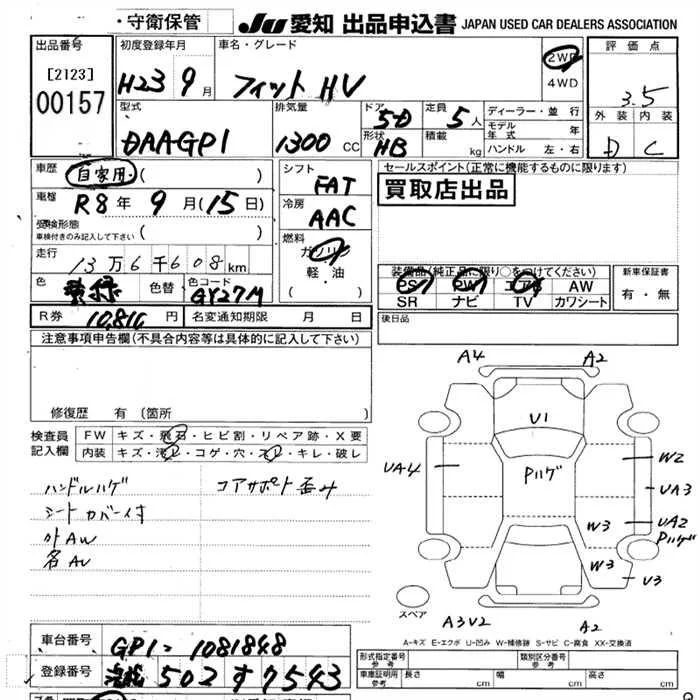 ・守衛保管
JU 愛知 出品申込書 JAPAN USED CAR DEALERS ASSOCIATION
出品番号
[2123]
00157
初度登録年月
H23 9月
車名・グレード
フィット HV
2WD
4WD
評価点
3.5
外装 内装
D C
型式
DAAGP1
排気量
1300 CC
ドア 5D
形状 HB
定員 5人
積載 kg
ディーラー・並行
モデル年式 年
ハンドル 左・右
車歴
自家用・( )
車検
R8年 9月(15日)
受検形態
車検付きのみ記入して下さい ( )
走行
13万6千608km
色
色替
色コード
GY27M
R券 10,810円
名変通知期限 月 日
シフト
FAT
冷房
AAC
燃料
ガソリン
軽・油
( )
セールスポイント(正常に機能するものに限ります)
買取店出品
装備品(純正品に限り○をつけてください)
PS PW エアB AW
SR ナビ TV カワシート
新車保証書
有・無
後日品
注意事項申告欄(不具合内容等は具体的に記入して下さい)
修復歴 有(箇所 )
検査員
記入欄
FW キズ・飛石・ヒビ割・リペア跡・X要
内装 キズ・汚レ・コゲ・穴・スレ・キレ・破レ
ハンドルハゲ
コアサポート歪み
シートカバー付
外AW
名AU
A4 A2
U1
Pハゲ
UA4
W2
UA3
UA2
Pハゲ
W3
W3
U3
スペア
A3U2 A2
A-キズ E-エクボ U-凹み W-補修跡 S-サビ C-腐食 XX-交換済
車台番号 GP1-1081848
登録番号 502 す 7543
形式指定番号
参考
類別区分番号
参考
車庫証明用
参考
長さ cm
幅 cm
高さ cm